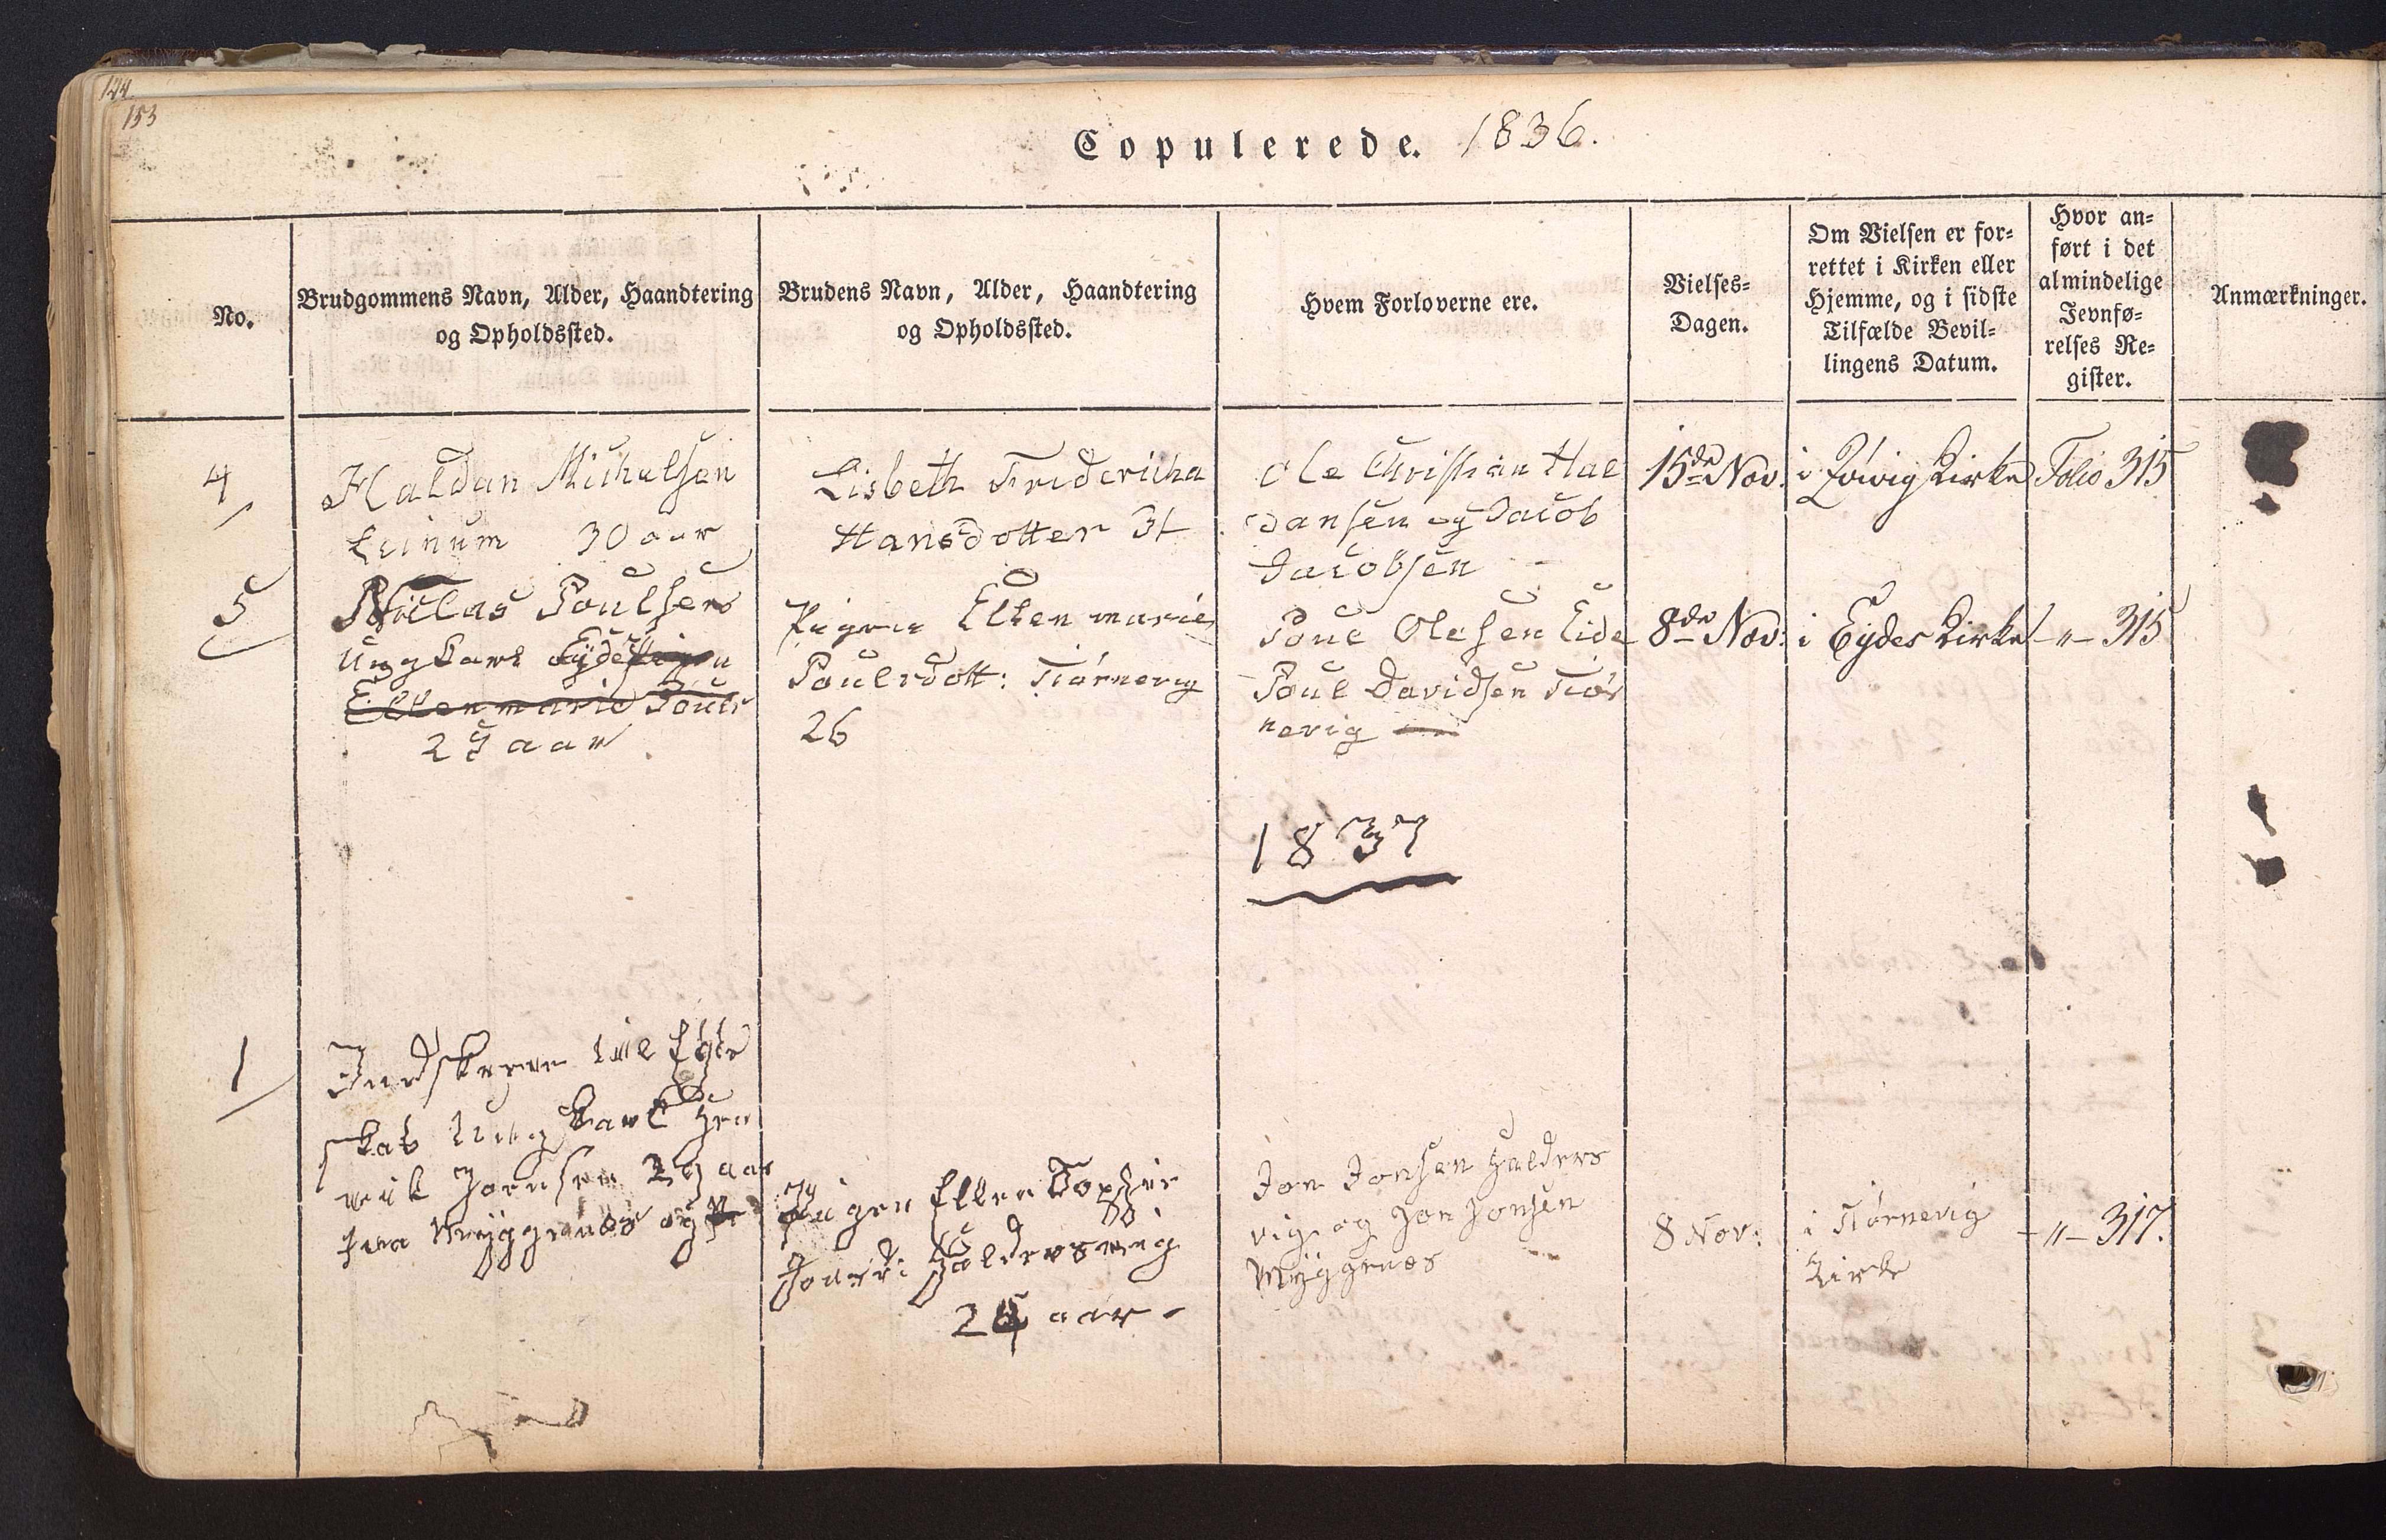 144
153
Copulerede. 1836.
No.
Brudgommens Navn, Alder, Haandtering
og Opholdssted.
Brudens Navn, Alder, Haandtering
og Opholdssted.
Hvem Forloverne ere.
Vielses-
Dagen.
Om Vielsen er for-
rettet i Kirken eller
Hjemme, og i sidste
Tilfælde Bevil-
lingens Datum.
Hvor an-
ført i det
almindelige
Jevnfø-
relses Re-
gister.
Anmærkninger.
4
Haldan Michelsen
Leinum 30 aar
Lisbeth Fridericha
Hansdotter 31
Ole Christian Hal
dansen og Jacob
Jacobsen
15de Nov.
i Qvivig Kirke
Folio 315
5
Niclas Poulsen
Ungkarl Eyde
Ellenmarie Pouls
29 aar
Pigen Ellen marie
Poulsdott: Tiørnevig
26
Poul Olesen Eide
Poul Davidsen Tiør
nevig
8de Nov:
i Eydes Kirke
-„- 315
1837
1
Indskreven till Egte
skab Ungkarl Hen
rik Joensen 29 aar
fra Myggenæs og
Pigen Ellen Sophie
Jousd: Haldersvig
24 aar -
Jon Jonsen Halders
vig og Jon Jonsen
Myggenæs
8 Nov:
i Tiørnevig
Kirke
-„- 317.